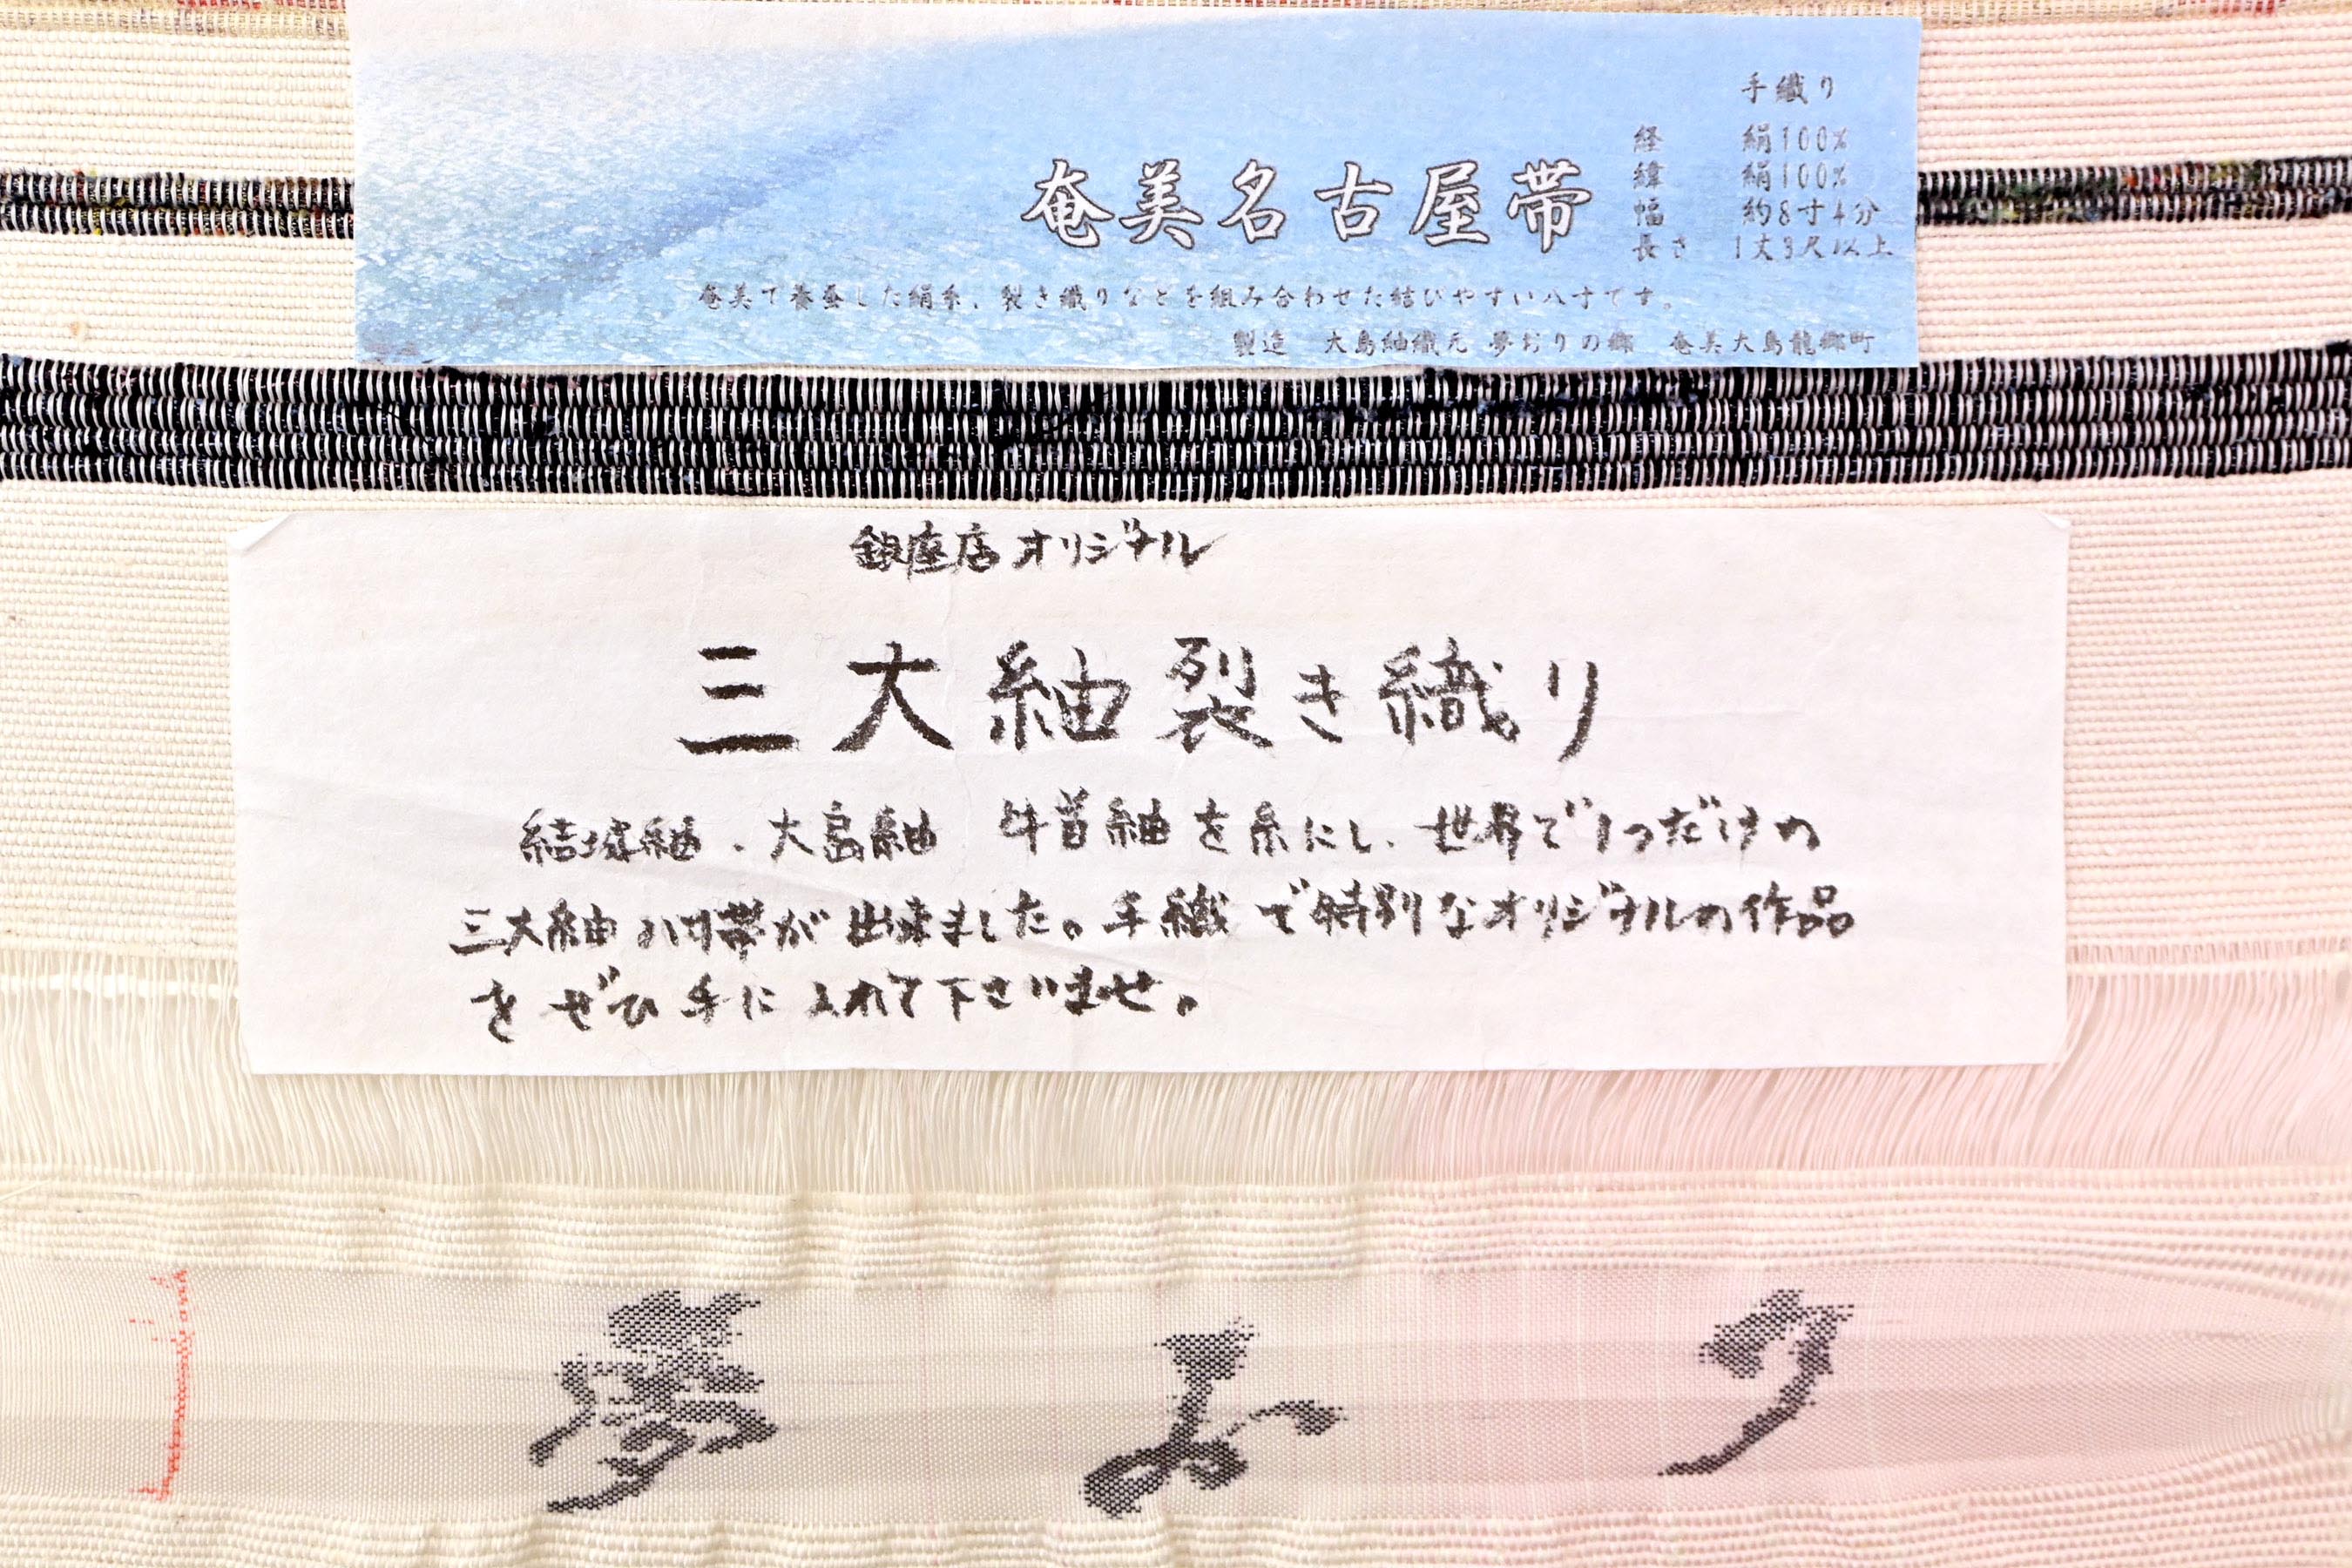 手織り
経 絹100%
緯 絹100%
幅 約8寸4分
長さ 1丈3尺以上
奄美名古屋帯
奄美で養蚕した絹糸、裂き織りなどを組み合わせた結びやすい八寸です。
製造 大島紬織元 夢おりの郷 奄美大島龍郷町
銀座店オリジナル
三大紬裂き織り
結城紬・大島紬 牛首紬を糸にし、世界で1つだけの
三大紬八寸帯が出来ました。手織で特別なオリジナルの作品
をぜひ手に入れて下さいませ。
夢おり